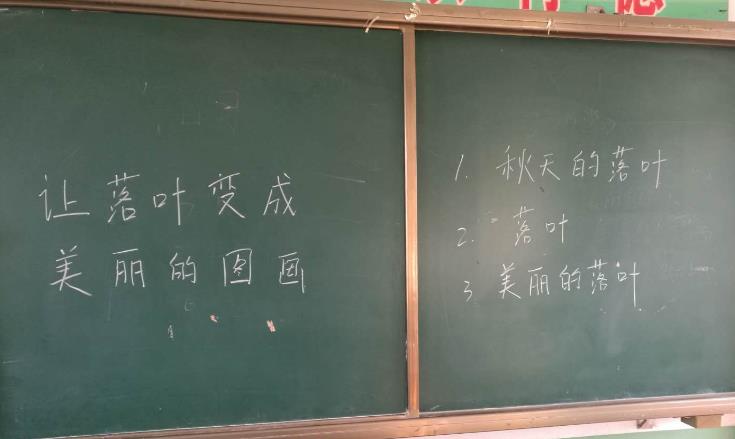 让落叶变成
美丽的图画
1. 秋天的落叶
2. 落叶
3 美丽的落叶